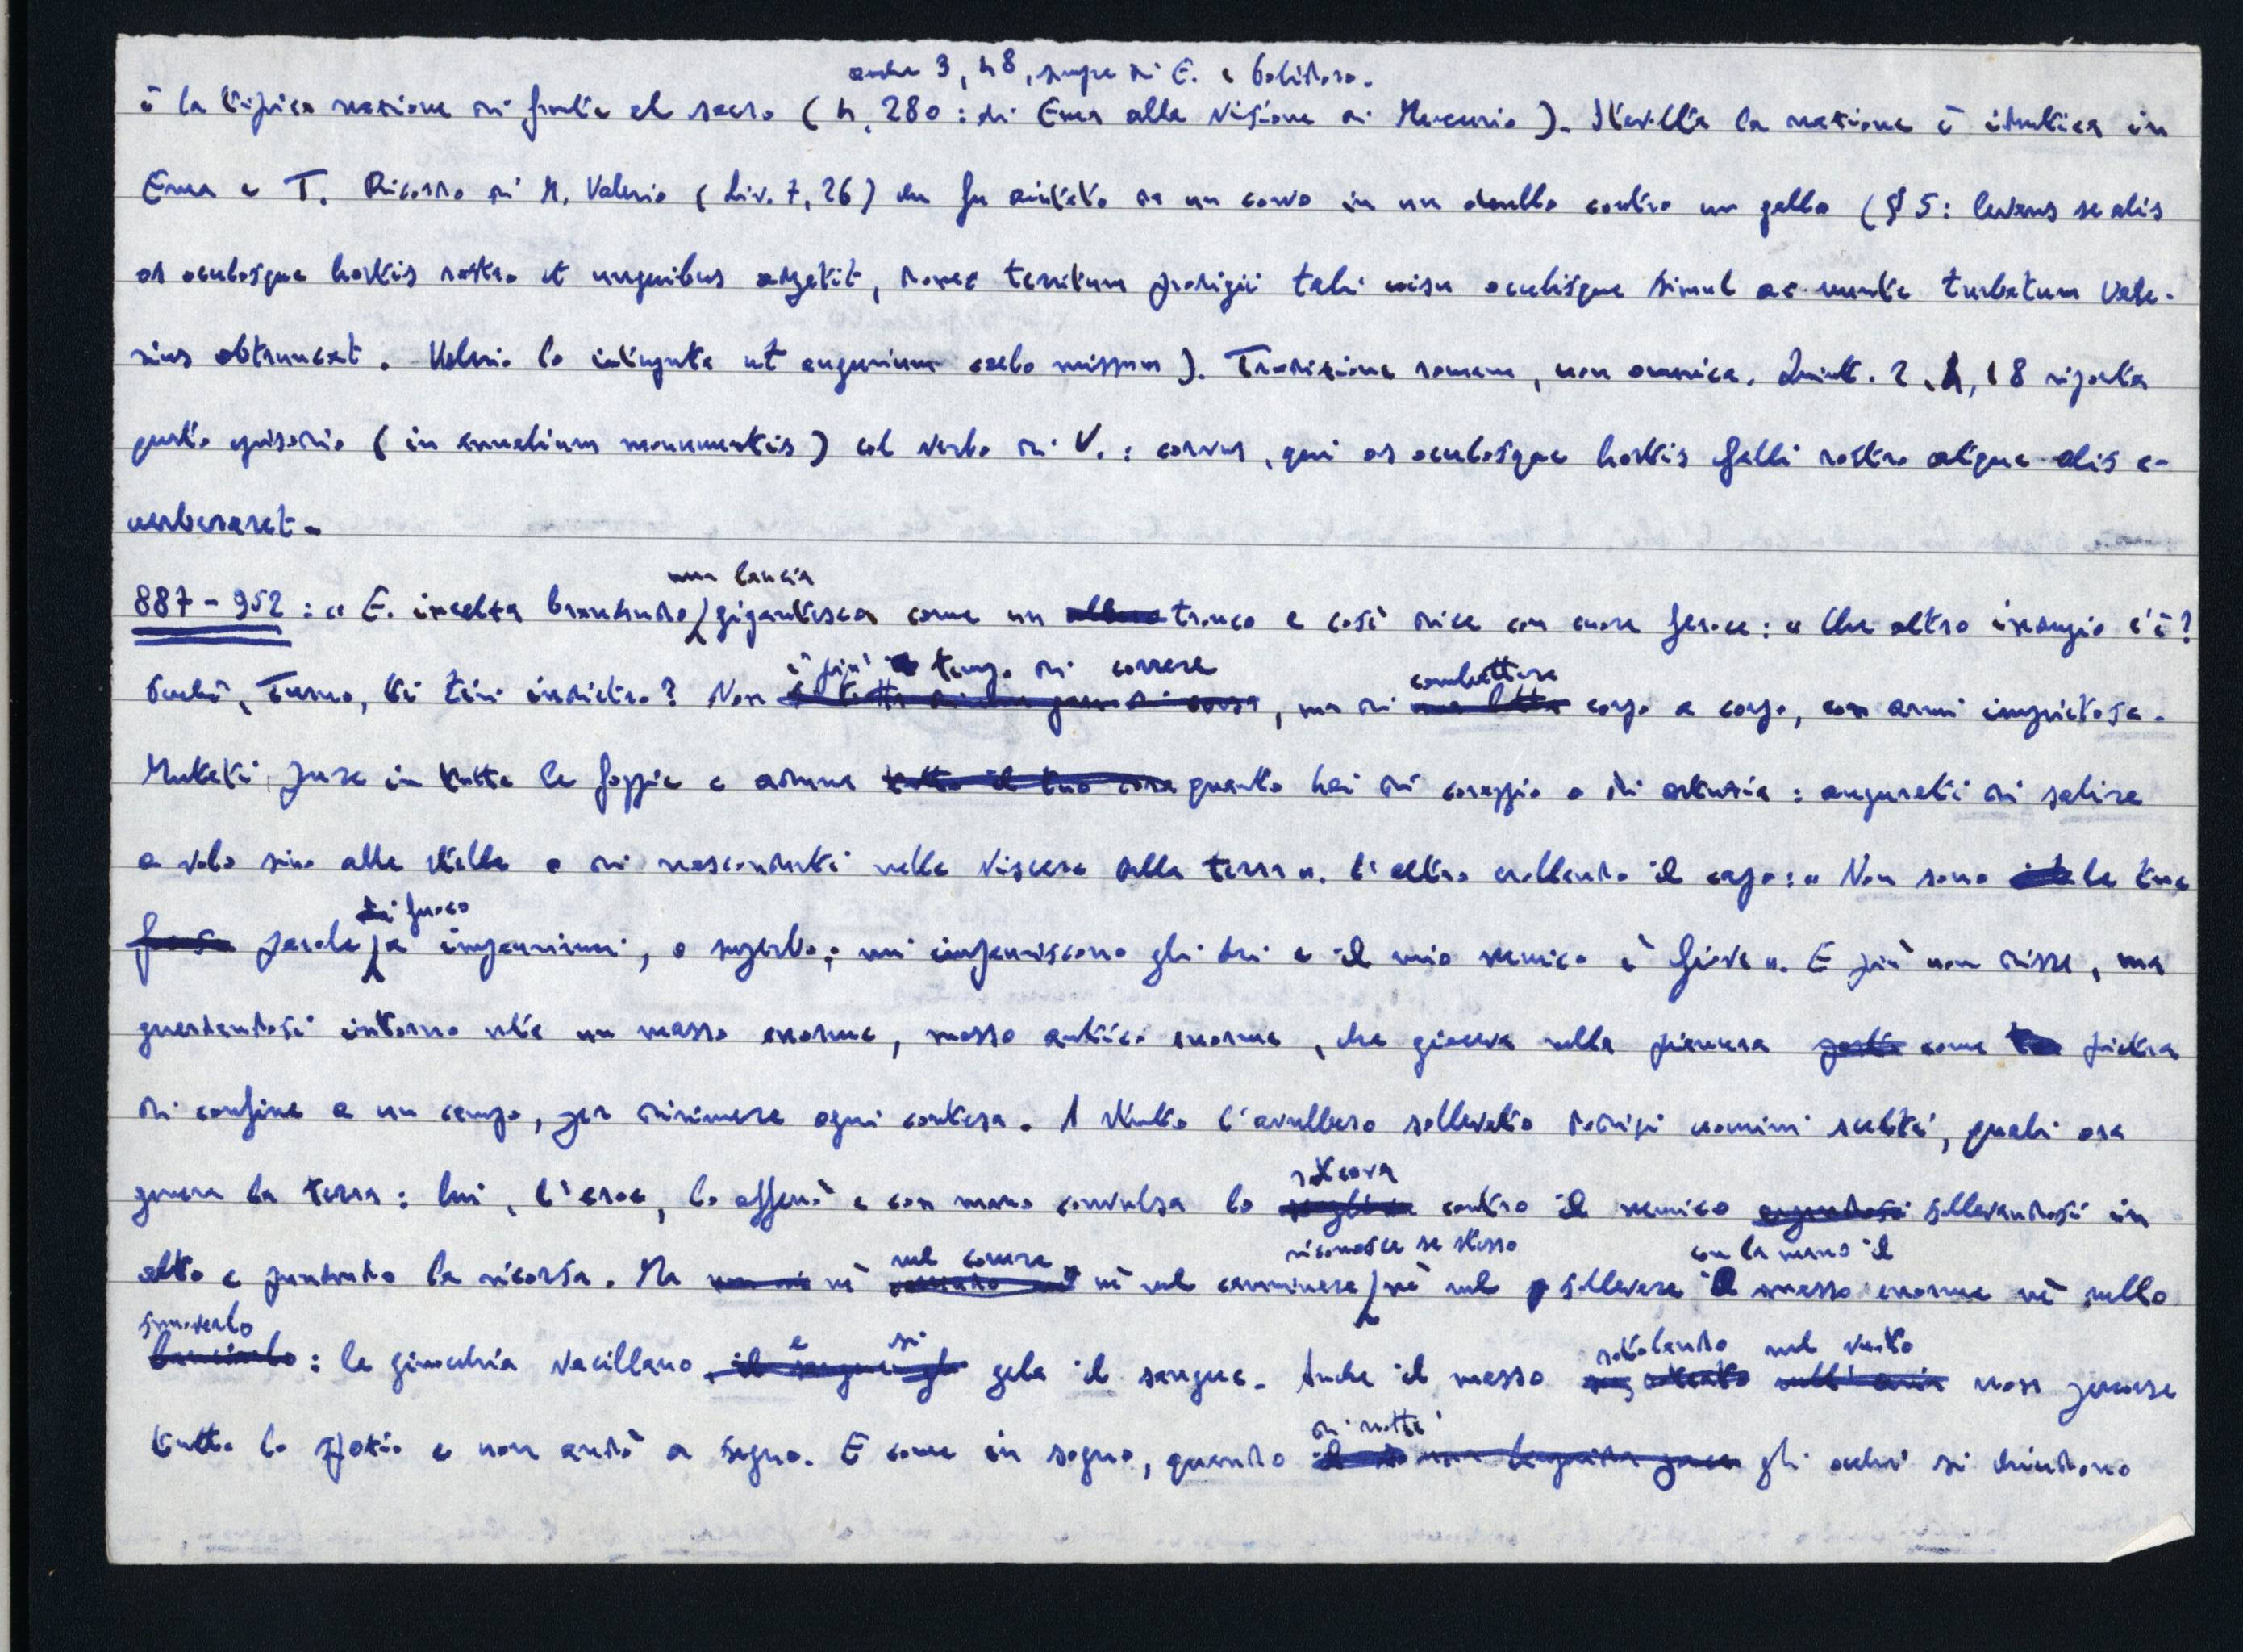 anche 3, 48, sempre di E. e Polidoro.
è la tipica reazione di fronte al sacro (4, 280: di Enea alla visione di Mercurio). Stavolta la reazione è identica in
Enea e T. Ricordo di M. Valerio (Liv. 7, 26) che fu aiutato da un corvo in un duello contro un gallo (§ 5: levans se alis
os oculosque hostis rostro et unguibus adpetit, donec territum prodigii tali visu oculisque simul ac mente turbatum Vale-
rius obtruncat. Valerio lo interpreta ut augurium caelo missum). Tradizione romana, non omerica. Quint. 2, 4, 18 riporta
questo episodio (in annalium monumentis) col verbo di V.: corvus, qui os oculosque hostis Galli rostro atque alis e-
verberaret.
una lancia
887-952: « E. incalza brandendo gigantesca come un albero tronco e così dice con cuore feroce: « Che altro indugio c'è?
è più tempo di correre combattere
Perché, Turno, ti tiri indietro? Non si tratta di una gara di corsa, ma di una lotta corpo a corpo, con armi impietose.
Mutati pure in tutte le foggie e aduna tutto il tuo cora quanto hai di coraggio o di astuzia: augurati di salire
a volo sino alle stelle o di nasconderti nelle viscere della terra ». L'altro crollando il capo: « Non sono le tue
di fuoco
parole a impaurirmi, o superbo; mi impauriscono gli dei e il mio nemico è Giove ». E più non disse, ma
guardandosi intorno vede un masso enorme, masso antico enorme, che giaceva nella pianura posto come pietra
di confine a un campo, per dirimere ogni contesa. A stento l'avrebbero sollevato dodici uomini scelti, quali ora
roteava
genera la terra: lui, l'eroe, lo afferrò e con mano convulsa lo scagliava contro il nemico ergendosi sollevandosi in
nel correre riconosce se stesso con la mano il
alto e prendendo la rincorsa. Ma non si né correndo né nel camminare né nel sollevare il masso enorme né nello
smuoverlo e si rotolando nel vuoto
lanciarlo: le ginocchia vacillano, il sangue gli gela il sangue. Anche il masso nell'aria non percorse
di notte
tutto lo spazio e non andò a segno. E come in sogno, quando una languida pace gli occhi si chiudono